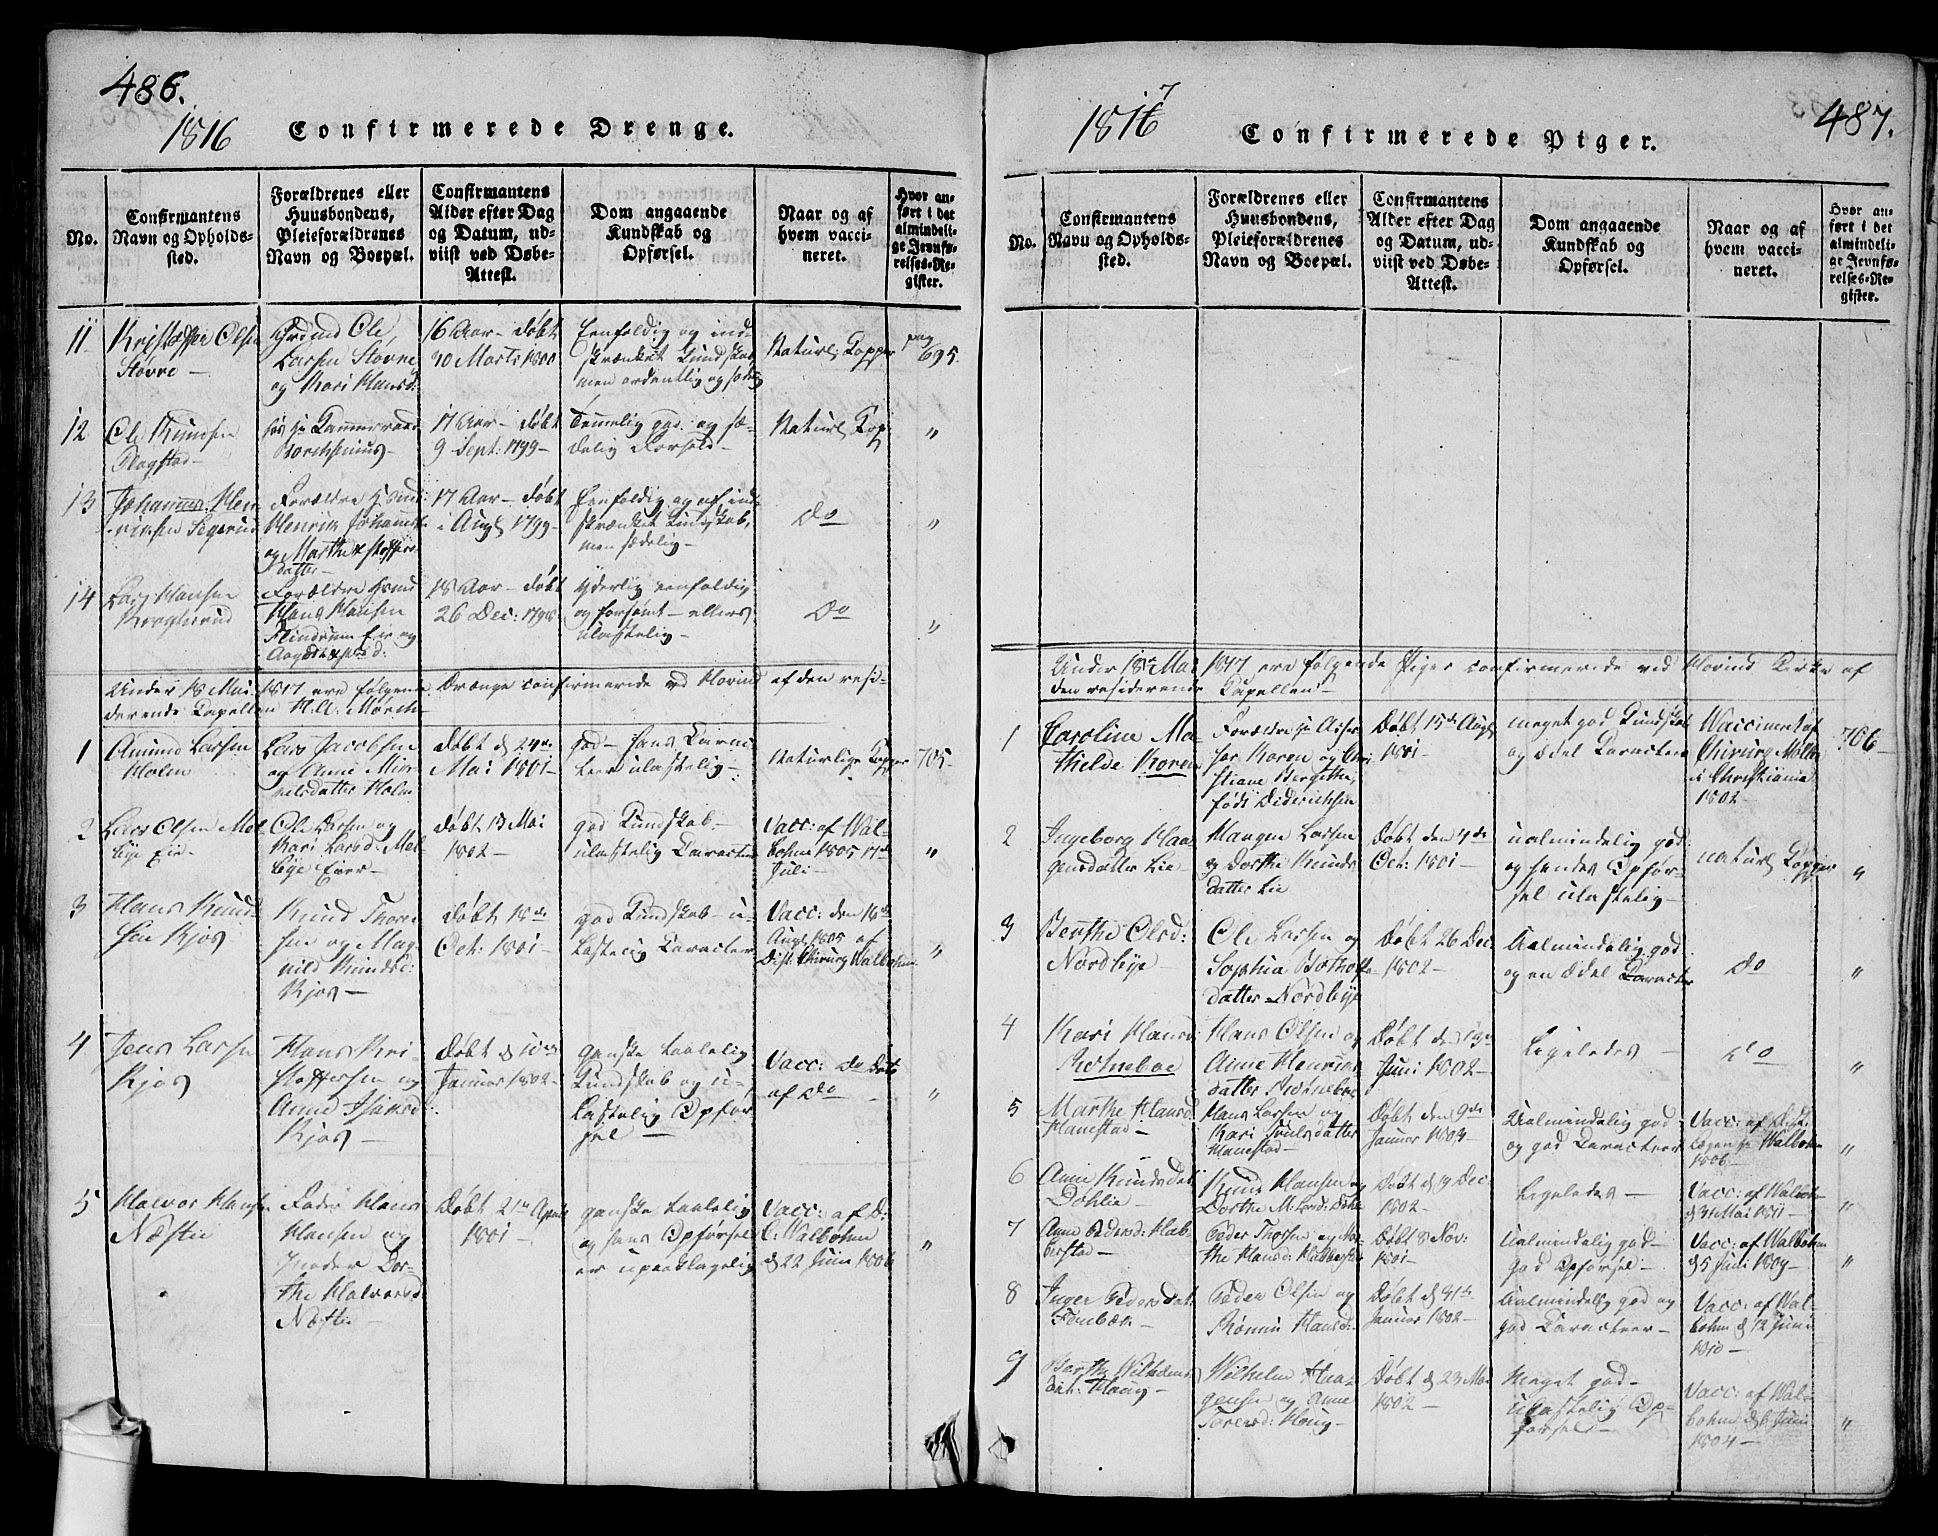 486.
1816 Confirmerede Drenge.
No.
Confirmantens
Navn og Opholds-
sted.
Forældrenes eller
Huusbondens,
Pleieforældrenes
Navn og Boepæl.
Confirmantens
Alder efter Dag
og Datum, ud-
viist ved Døbe-
Attest.
Dom angaaende
Kundskab og
Opførsel.
Naar og af
hvem vacci-
neret.
Hvor an-
ført i det
almindeli-
ge Jevnfø-
relses-Re-
gister.
11
Olsen
Støvre
Ole
Larsen Støvre
og Kari Hansd:
16 Aar - døbt
30 Marts 1800
Eenfoldig og ind-
skrænket Kundskab
men ordentlig og sædelig
Naturl: Kopper
pag
695.
12
Ole Knudsen
17 Aar - døbt
9 Sept: 1799 -
Temmelig god og sæ-
delig Forhold -
Naturl: Kop
"
13
Johannes Hen-
richsen Segerud
Forældre
Henrich Johannes
og Marthe
datter -
17 Aar - døbt
i Aug 1799 -
Eenfoldig og af ind-
skrænket Kundskab,
men sædelig -
Do
"
14
Lars Hansen
Forældre
Hans Hansen
Eie og
18 Aar - døbt
26 Dec: 1798
Yderlig eenfoldig
og forsømt - ellers
ulastelig -
Do
"
Under 18 Mai 1817 ere følgende Drænge confirmerede ved Hovind af den resi-
derende Capellan H. A. Mørch -
1
Amund Larsen
Holm
Lars Jacobsen
og Anne
datter Holm
døbt d 24de
Mai 1801 -
god - hans Carac-
teer ulastelig -
Naturlige Kopper
705 -
2
Lars Olsen Mel-
bye Eie -
Ole Larsen og
Kari Larsd: Mel-
bye Eier -
døbt 13 Mai
1802 -
god Kundskab -
ulastelig Caracteer
Vacc: af Wal-
bohm 1805 17de
Juli -
"
3
Hans Knud-
sen Kjos
Knud Thore-
sen og Mag-
nild Knudsd:
Kjos -
døbt 18de
Oct: 1801 -
god Kundskab - u-
lastelig Caracteer
Vacc: den 18de
Aug 1805 af
Dist: Chirurg Walbohm
"
4
Jens Larsen
Kjos
Hans Kri-
stoffersen og
Anne
Kjos -
Døbt d 10de
Januar 1802 -
ganske taalelig
Kundskab og u-
lastelig Opfør-
sel -
Vacc: do Dato
af Do -
"
5
Halvor Hansen
Næstie
Fader Hans
Hansen og
Moder Dor-
the Halvorsd:
Næstie -
Døbt 21de April
1801 -
ganske taalelig
og hans Opførsel
er upaaklagelig
Vacc: af D:
C: Walbohm
d 22 Juni 1806
"
487.
1817 Confirmerede Piger.
No.
Confirmantens
Navn og Opholds-
sted.
Forældrenes eller
Huusbondens,
Pleieforældrenes
Navn og Boepæl.
Confirmantens
Alder efter Dag
og Datum, ud-
viist ved Døbe-
Attest.
Dom angaaende
Kundskab og
Opførsel.
Naar og af
hvem vacci-
neret.
Hvor an-
ført i det
almindeli-
ge Jevnfø-
relses-Re-
gister.
Under 18de Mai 1817 ere følgende Piger confirmerede ved Hovind Kirke af
den residerende Capellan -
1
Caroline Ma-
thilde Koren
Forældre Hr Asses-
sor Koren og Chri-
stiane Birgithe,
født Diderichsen
Døbt 15de Aug
1801 -
meget god Kundskab
og ædel Caracteer
Vaccineret af
Chirurg Møller
i Christiania
1802 -
706 -
2
Ingeborg Maa-
gensdatter Lie
Maagen Larsen
og Dorthe Knuds-
datter Lie
Døbt den 4de
Oct: 1801 -
ualmindelig god
og hendes Opfør-
sel ulastelig -
naturl: Kopper
"
3
Berthe Olsd:
Nordbye -
Ole Larsen og
Sophia
datter Nordbye
Døbt 26 Dec:
1802 -
Ualmindelig god
og en ædel Caracteer
do
"
4
Kari Hansd:
Hans Olsen og
Anne Henrichs-
datter
Døbt den 13de
Juni 1802 -
Ligeledes -
do
"
5
Marthe Hansd:
Hanestad -
Hans Larsen og
Kari datter
Hanestad -
Døbt den 9de
Januar 1803 -
Ualmindelig god
og god Caracteer
Vacc: af Dist:
Walbohm
1806 -
"
6
Anne Knudsdat:
Dahlie -
Knud Hansen og
Dorthe
Døbt d 9 Dec:
1802 -
Ligeledes -
Vacc: af Walbohm
d 31 Mai 1811 -
"
7
Anne Pedersd: Hal-
berstad -
Peder Thorsen og Mar-
the Hansd: Halberstad
Døbt 8 Nov:
1801 -
Ualmindelig god -
god Opførsel -
Vacc: af Walbohm
d 5 Juni 1809 -
"
8
Inger Pedersdat:
Peder Olsen og
Hansd:
Døbt d 31te
Januar 1802 -
Ualmindelig god og
god Caracteer -
Vacc: af Wal-
bohm d 12 Juni
1810 -
"
9
Berthe Wilhelms-
dat: Houg -
Wilhelm Haa-
gensen og Anne
Torersd: Houg -
Døbt d 23 Mai
1802 -
Meget god -
Ulastelig Op-
førsel -
Vacc: af Wal-
bohm d 6 Juni
1804 -
"